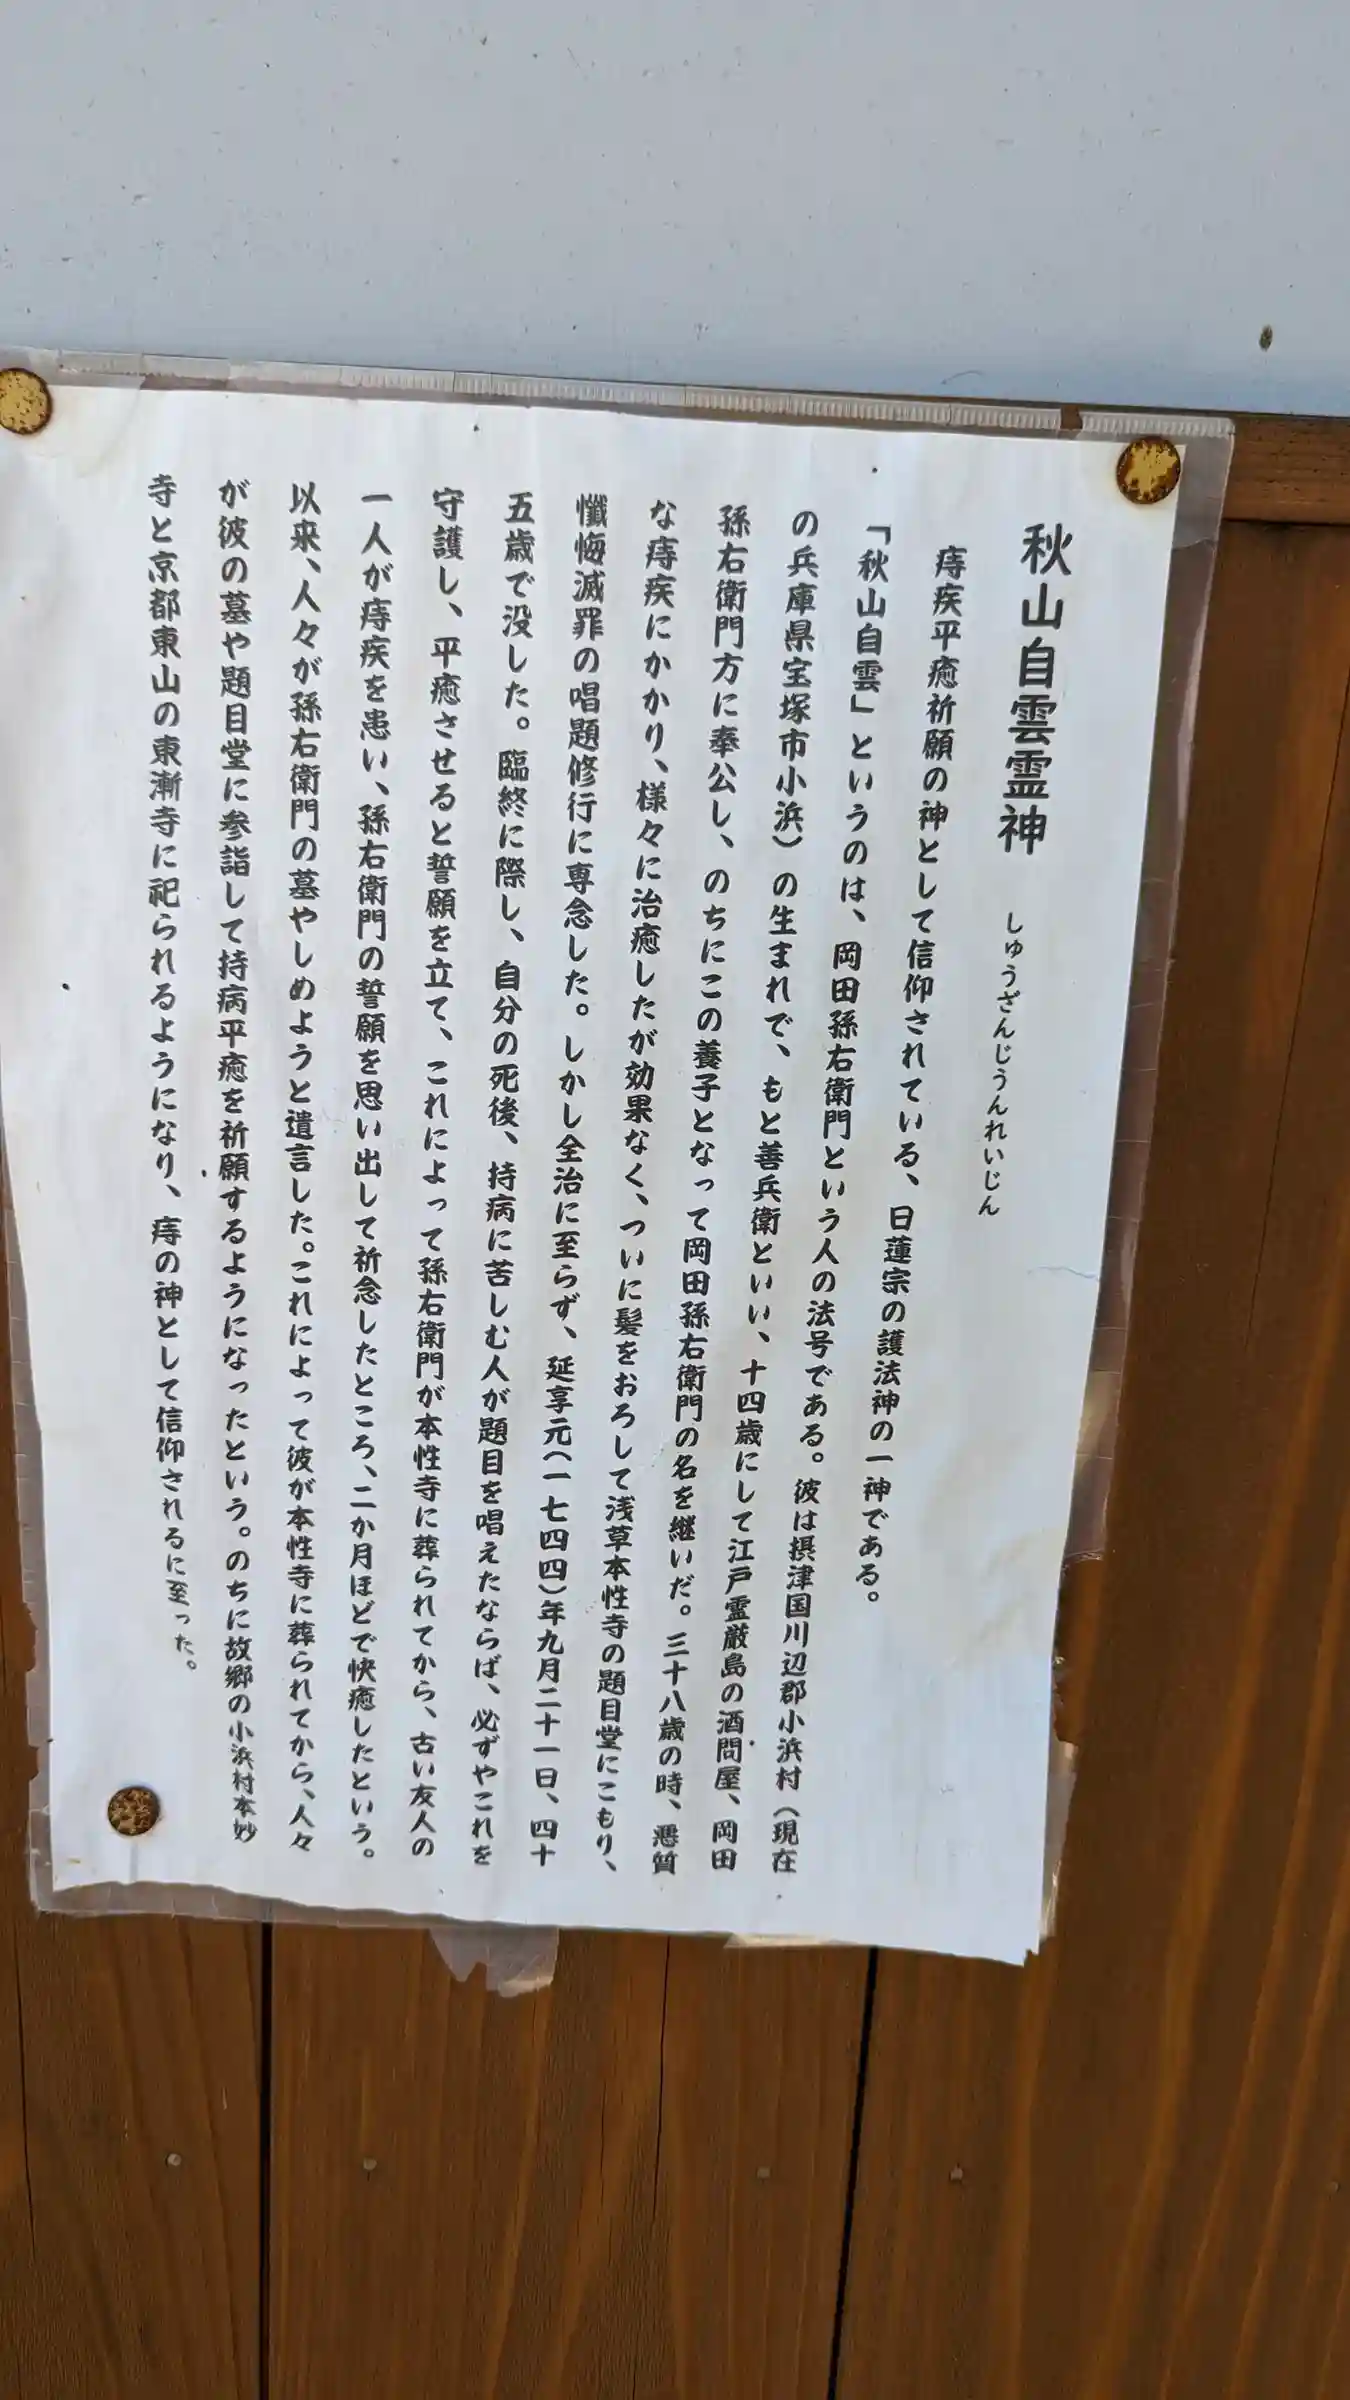 秋山自雲霊神 しゅうざんじうんれいじん
痔疾平癒祈願の神として信仰されている、日蓮宗の護法神の一神である。
「秋山自雲」というのは、岡田孫右衛門という人の法号である。彼は摂津国川辺郡小浜村(現在
の兵庫県宝塚市小浜)の生まれで、もと善兵衛といい、十四歳にして江戸霊厳島の酒問屋、岡田
孫右衛門方に奉公し、のちにこの養子となって岡田孫右衛門の名を継いだ。三十八歳の時、悪質
な痔疾にかかり、様々に治癒したが効果なく、ついに髪をおろして浅草本性寺の題目堂にこもり、
懺悔滅罪の唱題修行に専念した。しかし全治に至らず、延享元(一七四四)年九月二十一日、四十
五歳で没した。臨終に際し、自分の死後、持病に苦しむ人が題目を唱えたならば、必ずやこれを
守護し、平癒させると誓願を立て、これによって孫右衛門が本性寺に葬られてから、古い友人の
一人が痔疾を患い、孫右衛門の誓願を思い出して祈念したところ、二か月ほどで快癒したという。
以来、人々が孫右衛門の墓やしめようと遺言した。これによって彼が本性寺に葬られてから、人々
が彼の墓や題目堂に参詣して持病平癒を祈願するようになったという。のちに故郷の小浜村本妙
寺と京都東山の東漸寺に祀られるようになり、痔の神として信仰されるに至った。